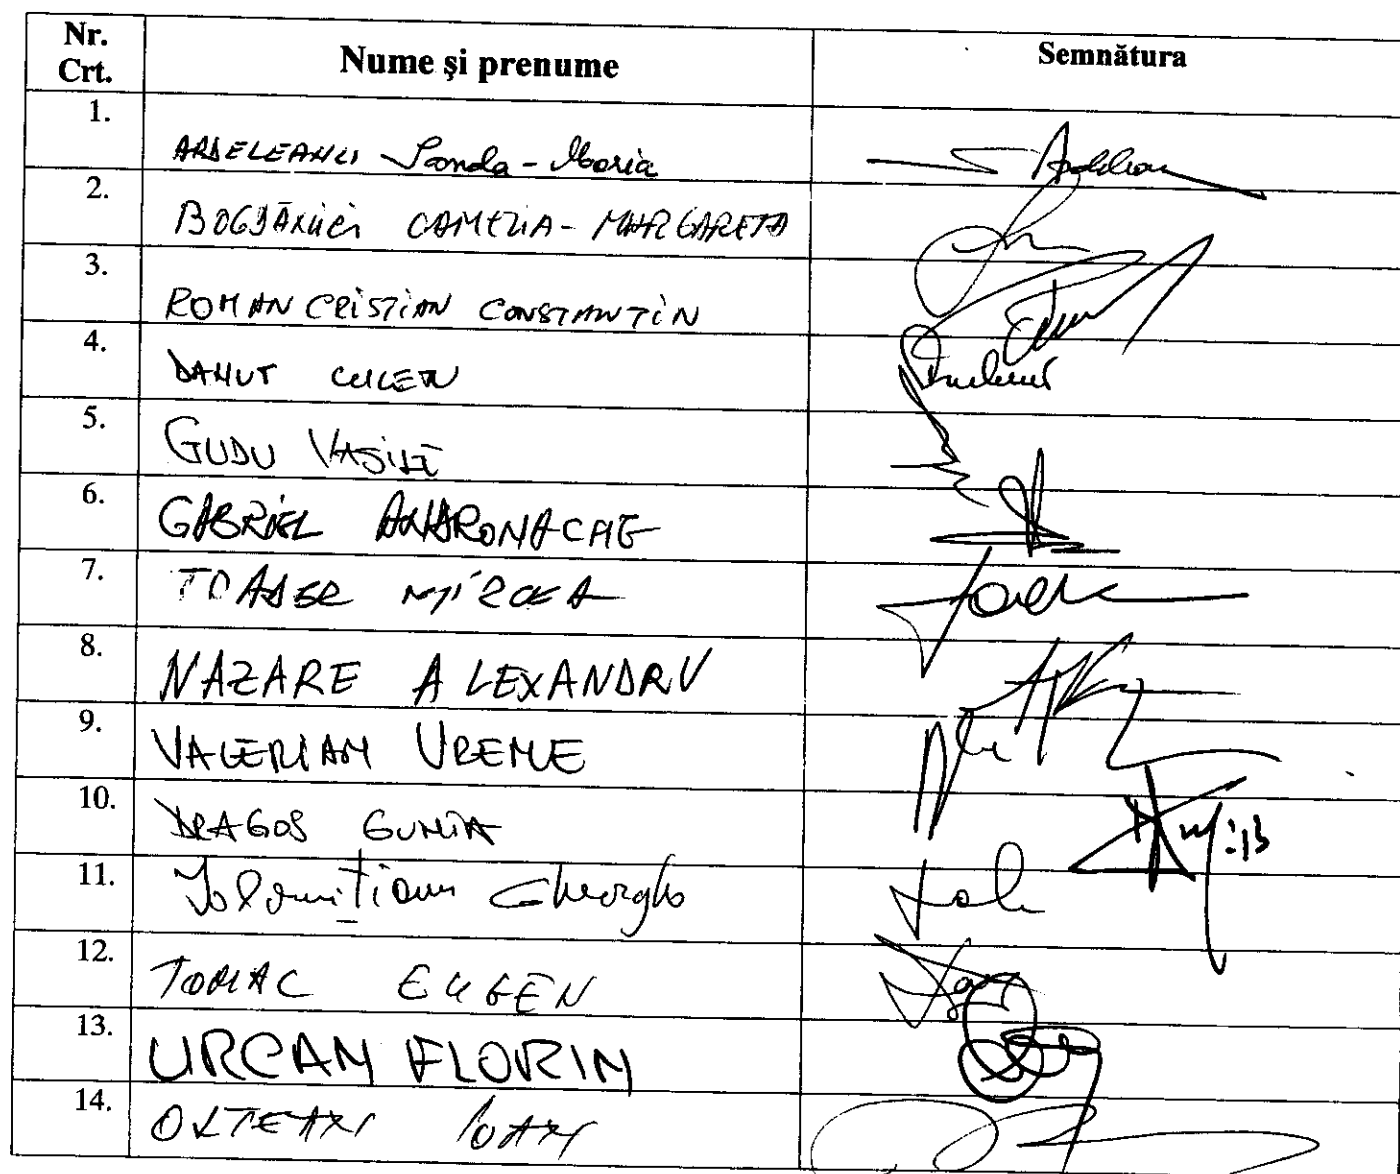 Nr. Crt. Nume şi prenume Semnătura
1. ARDELEANU Sanda-Maria
2. BOGDĂNICI CAMELIA-MARGARETA
3. ROMAN CRISTIAN CONSTANTIN
4. DANUT CULETU
5. GUDU VASILE
6. GABRIEL ANDRONACHE
7. TOADER MIRCEA
8. NAZARE ALEXANDRU
9. VALERIAN VREME
10. DRAGOS GUNIA
11. Ialomițianu Gheorghe
12. TOMAC EUGEN
13. URCAN FLORIN
14. OLTEAN IOAN